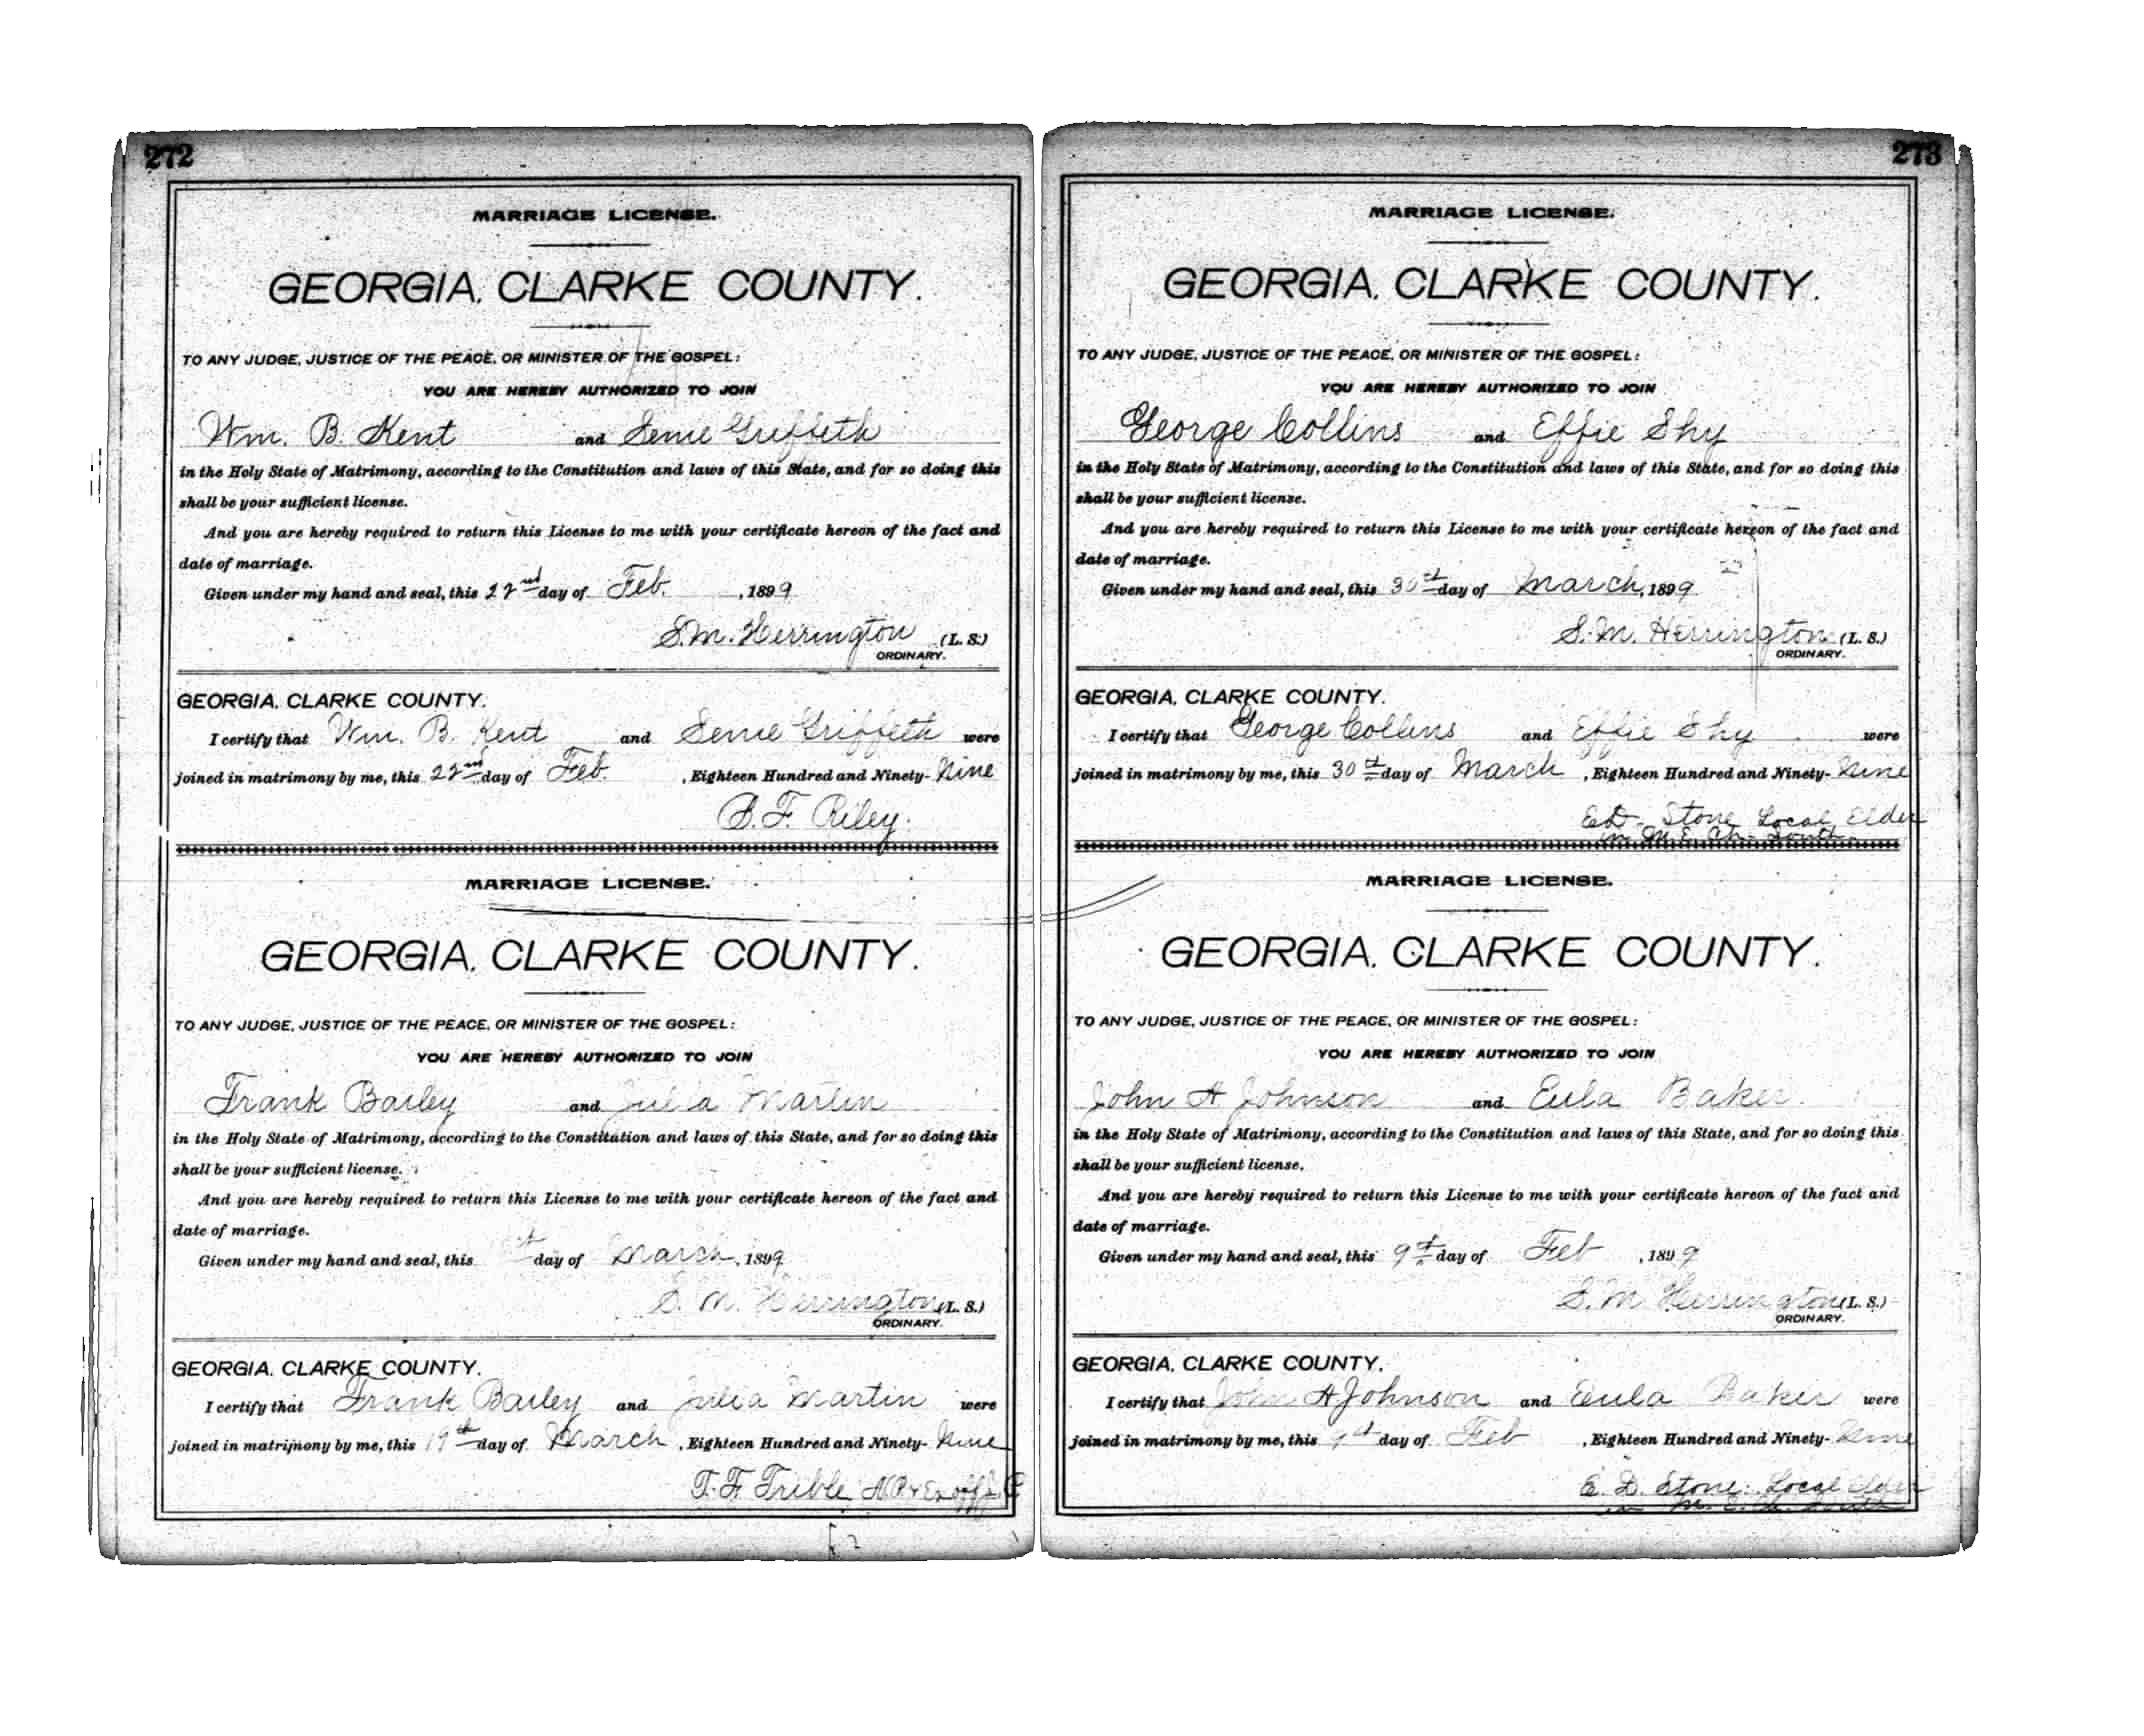 272
MARRIAGE LICENSE.
GEORGIA, CLARKE COUNTY.
TO ANY JUDGE, JUSTICE OF THE PEACE, OR MINISTER OF THE GOSPEL:
YOU ARE HEREBY AUTHORIZED TO JOIN
Wm. B. Kent and Griffeth
in the Holy State of Matrimony, according to the Constitution and laws of this State, and for so doing this
shall be your sufficient license.
And you are hereby required to return this License to me with your certificate hereon of the fact and
date of marriage.
Given under my hand and seal, this 22nd day of Feb. , 1899
S.M. Herrington (L. S.)
ORDINARY.
GEORGIA, CLARKE COUNTY.
I certify that Wm. B. Kent and Griffeth were
joined in matrimony by me, this 22nd day of Feb. , Eighteen Hundred and Ninety- Nine
B.F. Riley.
MARRIAGE LICENSE.
GEORGIA, CLARKE COUNTY.
TO ANY JUDGE, JUSTICE OF THE PEACE, OR MINISTER OF THE GOSPEL:
YOU ARE HEREBY AUTHORIZED TO JOIN
Frank Bailey and Julia Martin
in the Holy State of Matrimony, according to the Constitution and laws of this State, and for so doing this
shall be your sufficient license.
And you are hereby required to return this License to me with your certificate hereon of the fact and
date of marriage.
Given under my hand and seal, this day of March , 1899
S. M. Herrington (L. S.)
ORDINARY.
GEORGIA, CLARKE COUNTY.
I certify that Frank Bailey and Julia Martin were
joined in matrimony by me, this 19th day of March , Eighteen Hundred and Ninety- Nine
T. F. Trible N.P. & Ex off J. P
273
MARRIAGE LICENSE.
GEORGIA, CLARKE COUNTY.
TO ANY JUDGE, JUSTICE OF THE PEACE, OR MINISTER OF THE GOSPEL:
YOU ARE HEREBY AUTHORIZED TO JOIN
George Collins and Effie Shy
in the Holy State of Matrimony, according to the Constitution and laws of this State, and for so doing this
shall be your sufficient license.
And you are hereby required to return this License to me with your certificate hereon of the fact and
date of marriage.
Given under my hand and seal, this 30th day of March , 1899
S. M. Herrington (L. S.)
ORDINARY.
GEORGIA, CLARKE COUNTY.
I certify that George Collins and Effie Shy were
joined in matrimony by me, this 30th day of March , Eighteen Hundred and Ninety- Nine
E D. Stone Local Elder
in M. E. Ch. South
MARRIAGE LICENSE.
GEORGIA, CLARKE COUNTY.
TO ANY JUDGE, JUSTICE OF THE PEACE, OR MINISTER OF THE GOSPEL:
YOU ARE HEREBY AUTHORIZED TO JOIN
John H Johnson and Eula Baker
in the Holy State of Matrimony, according to the Constitution and laws of this State, and for so doing this
shall be your sufficient license.
And you are hereby required to return this License to me with your certificate hereon of the fact and
date of marriage.
Given under my hand and seal, this 9th day of Feb , 1899
S. M Herrington (L. S.)
ORDINARY.
GEORGIA, CLARKE COUNTY.
I certify that John H Johnson and Eula Baker were
joined in matrimony by me, this 9th day of Feb , Eighteen Hundred and Ninety- Nine
E. D. Stone. Local Elder
in M. E. Ch. South